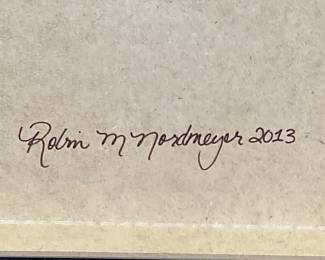 Robin M Nordmeyer 2013